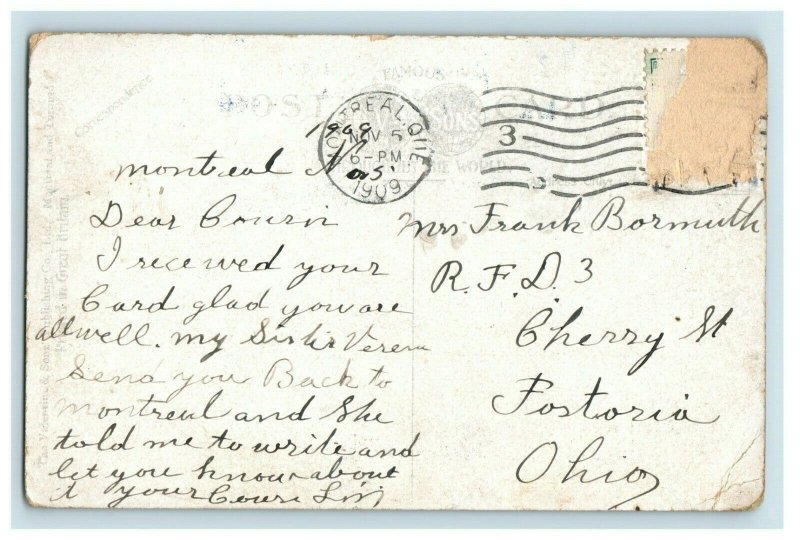 FAMOUS
POST CARD
Correspondence
MONTREAL, QUE
NOV 5
6-PM
1909
3
1909
montreal N
5
Dear Cousin
I received your
Card glad you are
all well. my Sister Verena
Send you Back to
montreal and She
told me to write and
let you know about
it your Cousi
The Valentine & Sons Publishing Co., Ltd., Montreal and Toronto
in Great Britain.
Mrs Frank Bormuth
R.F.D. 3
Cherry St
Fostoria
Ohio